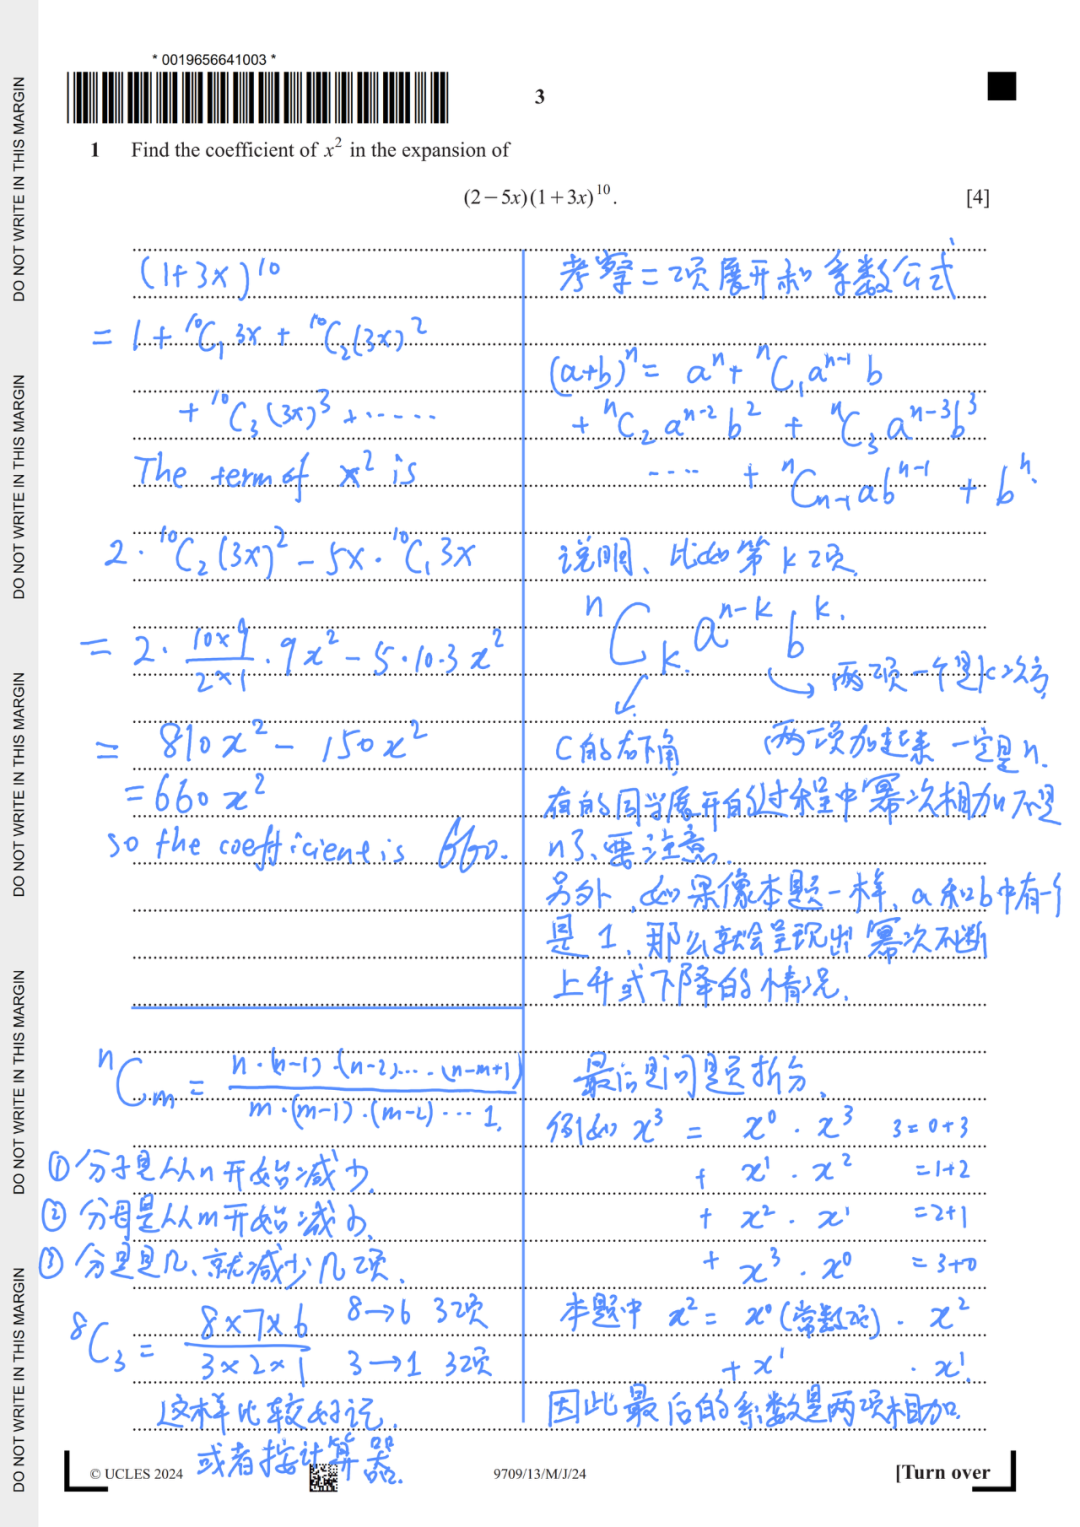 * 0019656641003 *
3
DO NOT WRITE IN THIS MARGIN
DO NOT WRITE IN THIS MARGIN
DO NOT WRITE IN THIS MARGIN
DO NOT WRITE IN THIS MARGIN
DO NOT WRITE IN THIS MARGIN
1 Find the coefficient of x² in the expansion of
(2 − 5x)(1 + 3x)¹⁰.
[4]
(1+3x)¹⁰
= 1 + ¹⁰C₁ 3x + ¹⁰C₂(3x)²
+ ¹⁰C₃(3x)³ + ......
The term of x² is
2 · ¹⁰C₂(3x)² − 5x · ¹⁰C₁ 3x
= 2 · (10×9)/(2×1) · 9x² − 5·10·3 x²
= 810x² − 150x²
= 660x²
so the coefficient is 660.
考察二项展开和系数公式
(a+b)ⁿ = aⁿ + ⁿC₁aⁿ⁻¹b
+ ⁿC₂aⁿ⁻²b² + ⁿC₃aⁿ⁻³b³
.... + ⁿCₙ₋₁abⁿ⁻¹ + bⁿ.
说明、比如第k项
ⁿCₖ aⁿ⁻ᵏ bᵏ.
两项一个是k次方
C的右下角
两项加起来一定是n.
有的同学展开的过程中幂次相加不是
n了、要注意.
另外,如果像本题一样、a和b中有一个
是1、那么就会呈现出幂次不断
上升或下降的情况.
ⁿCₘ = n·(n−1)·(n−2)...·(n−m+1) / m·(m−1)·(m−2)···1.
① 分子是从n开始减少.
② 分母是从m开始减少.
③ 分是是几、就减少几项.
⁸C₃ = (8×7×6)/(3×2×1)
8→6 3项
3→1 3项
这样比较好记.
或者按计算器.
最后是问题拆分.
例如 x³ = x⁰ · x³ 3=0+3
+ x¹ · x² =1+2
+ x² · x¹ =2+1
+ x³ · x⁰ =3+0
本题中 x² = x⁰(常数项) · x²
+ x¹ · x¹.
因此最后的系数是两项相加.
© UCLES 2024
9709/13/M/J/24
[Turn over